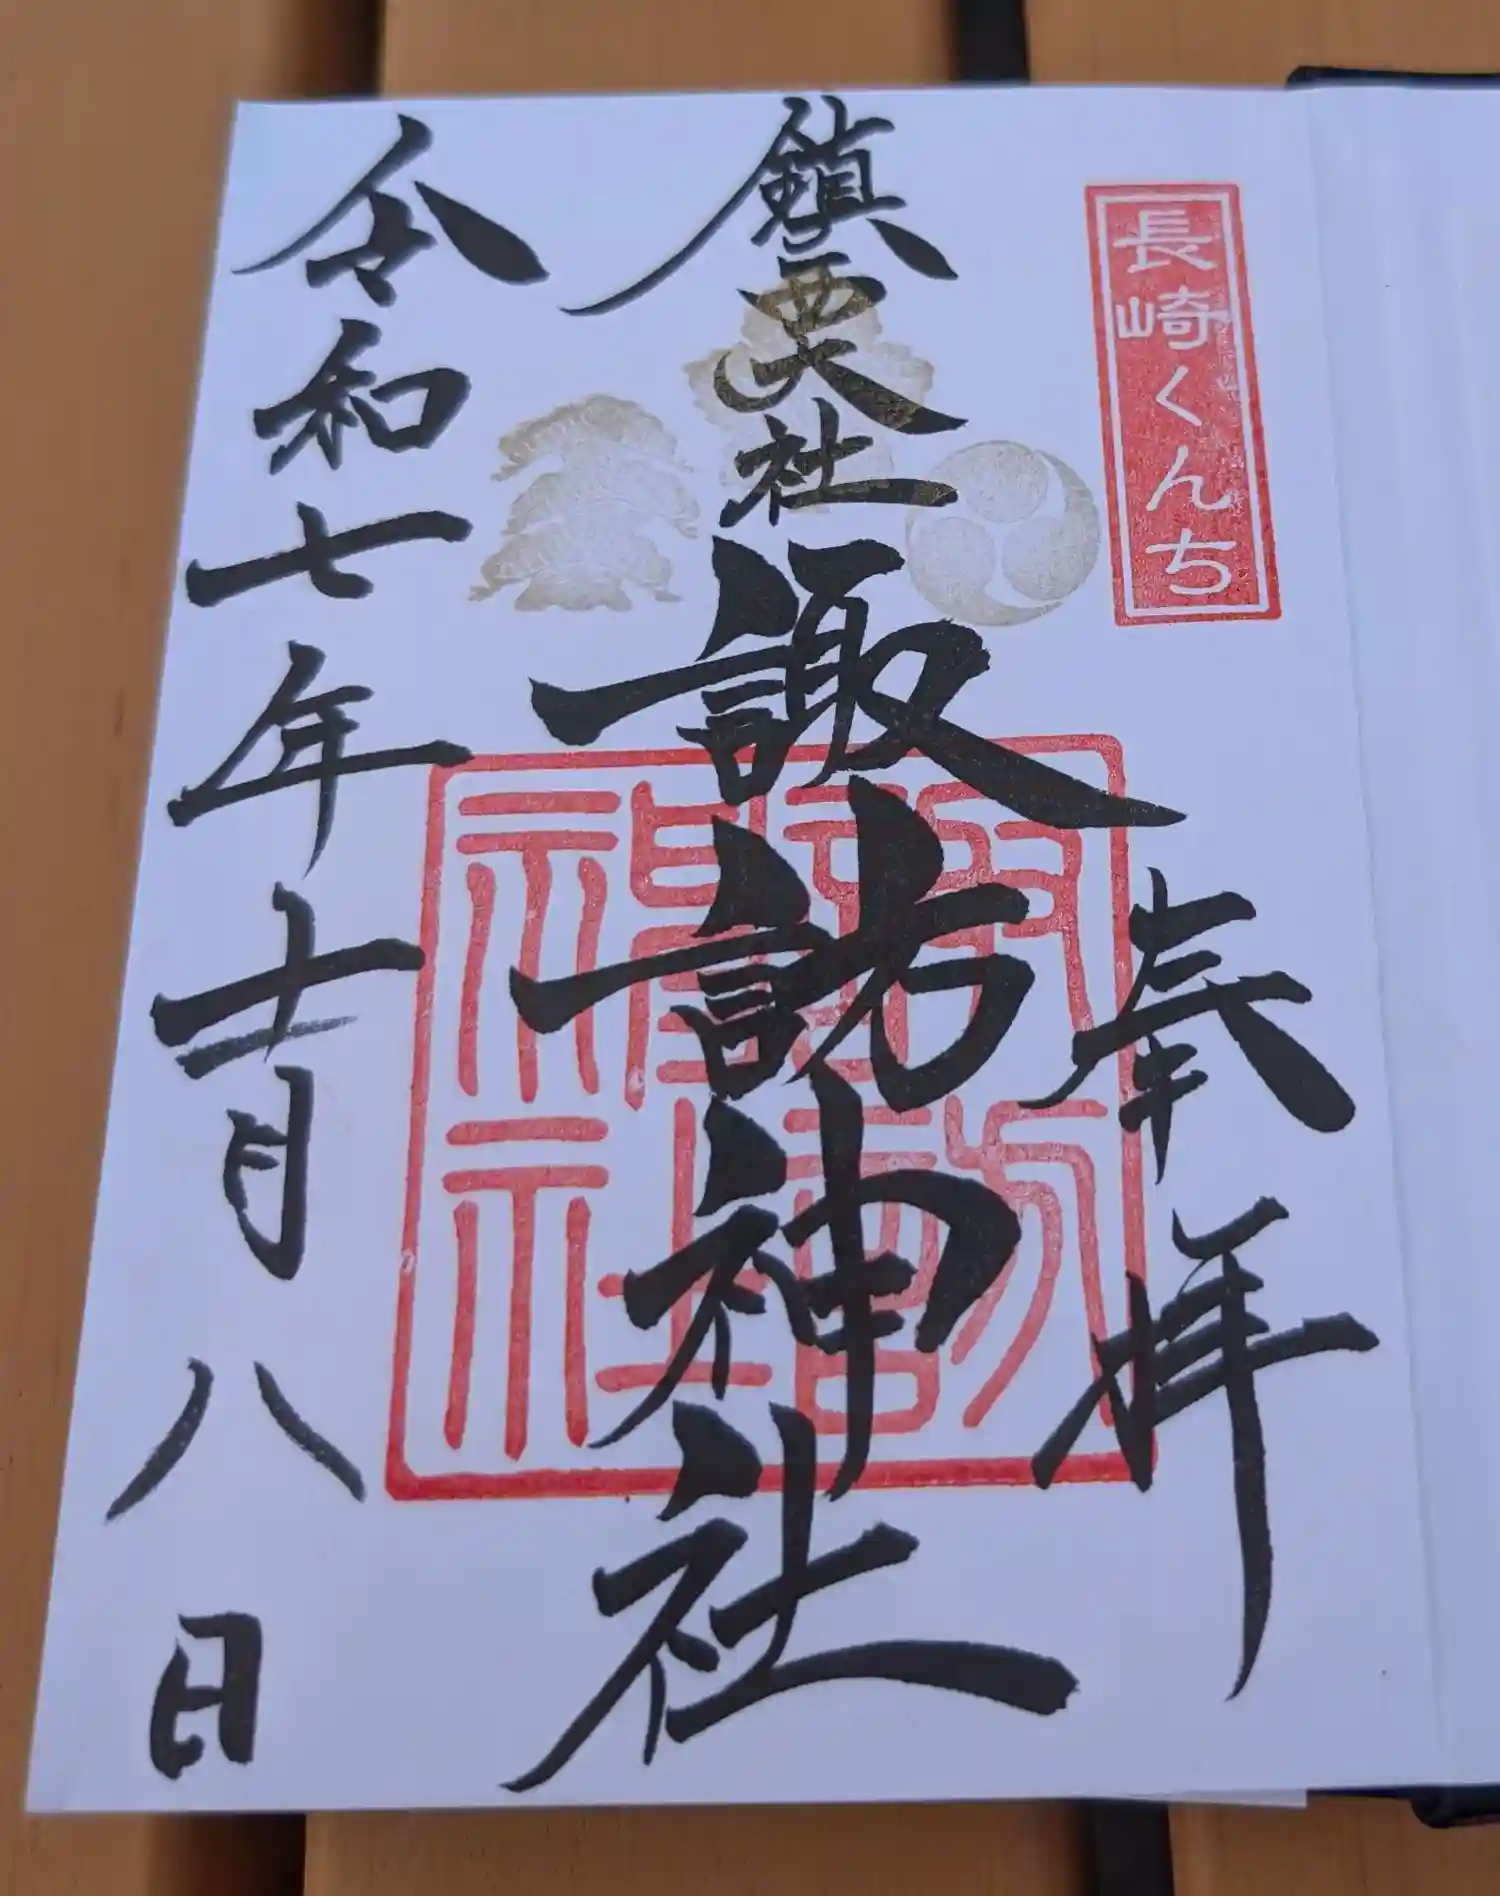 長崎くんち
奉拝
鎮西大社 諏訪神社
諏訪
神社
令和七年十月八日